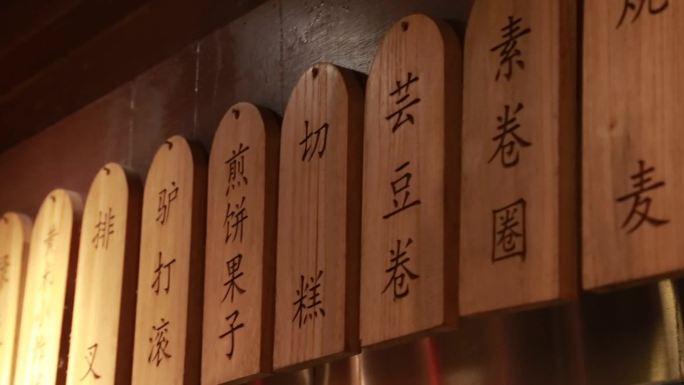 排叉
驴打滚
煎饼果子
切糕
芸豆卷
素卷圈
烧麦